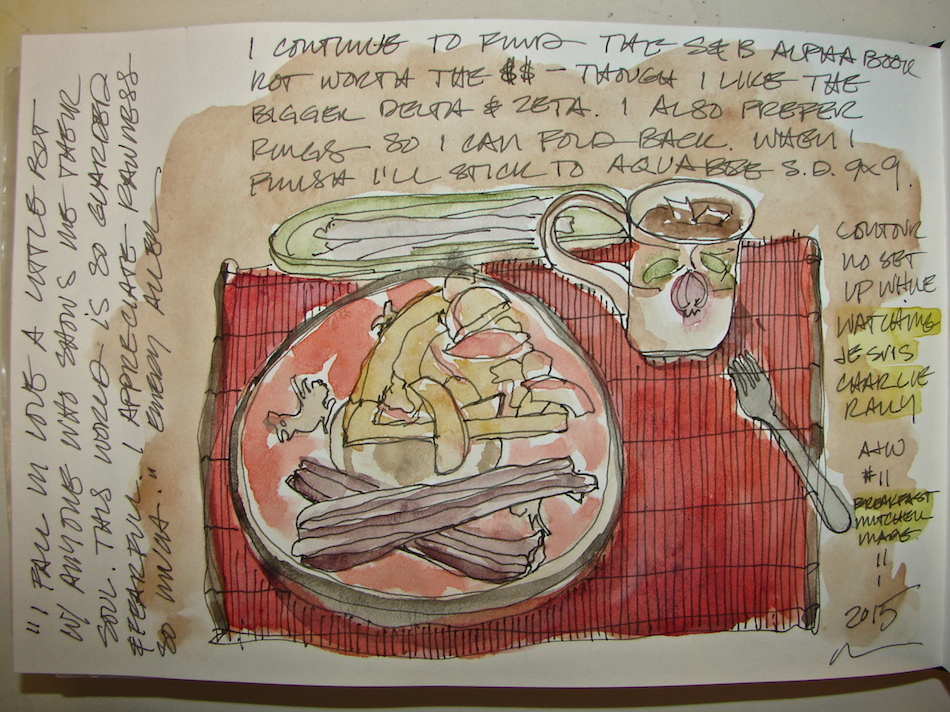 "I FALL IN LOVE A LITTLE BIT
W/ ANYONE WHO SHOWS ME THEIR
SOUL. THIS WORLD IS SO GUARDED
& FEARFUL. I APPRECIATE RAWNESS
SO MUCH." EMERY ALLEN
I CONTINUE TO FIND THE S&B ALPHA BOOK
NOT WORTH THE $$ – THOUGH I LIKE THE
BIGGER DELTA & ZETA. I ALSO PREFER
RINGS SO I CAN FOLD BACK. WHEN I
FINISH I'LL STICK TO AQUABEE S.D. 9x9.
CONTOUR
NO SET
UP WHILE
WATCHING
JE SUIS
CHARLIE
RALLY
#11
BREAKFAST
MITCHELL
MADE
11
1
2015